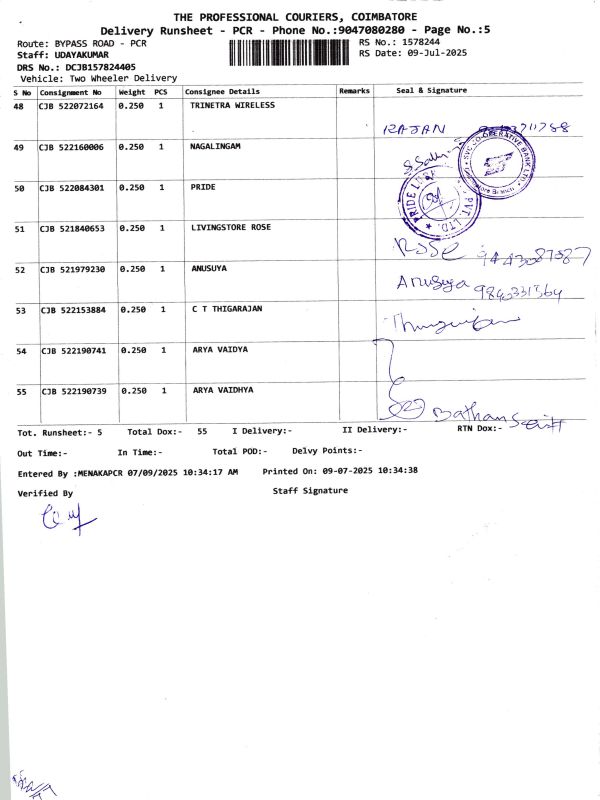 THE PROFESSIONAL COURIERS, COIMBATORE
Delivery Runsheet - PCR - Phone No.:9047080280 - Page No.:5
Route: BYPASS ROAD - PCR RS No.: 1578244
Staff: UDAYAKUMAR RS Date: 09-Jul-2025
DRS No.: DCJB157824405
Vehicle: Two Wheeler Delivery
S No Consignment No Weight PCS Consignee Details Remarks Seal & Signature
48 CJB 522072164 0.250 1 TRINETRA WIRELESS
RAJAN
49 CJB 522160006 0.250 1 NAGALINGAM
SVC CO-OPERATIVE BANK LTD.
50 CJB 522084301 0.250 1 PRIDE
PRIDE PVT. LTD.
51 CJB 521840653 0.250 1 LIVINGSTORE ROSE
Rose
52 CJB 521979230 0.250 1 ANUSUYA
Anusuya
53 CJB 522153884 0.250 1 C T THIGARAJAN
54 CJB 522190741 0.250 1 ARYA VAIDYA
55 CJB 522190739 0.250 1 ARYA VAIDHYA
Tot. Runsheet:- 5 Total Dox:- 55 I Delivery:- II Delivery:- RTN Dox:-
Out Time:- In Time:- Total POD:- Delvy Points:-
Entered By :MENAKAPCR 07/09/2025 10:34:17 AM Printed On: 09-07-2025 10:34:38
Verified By Staff Signature